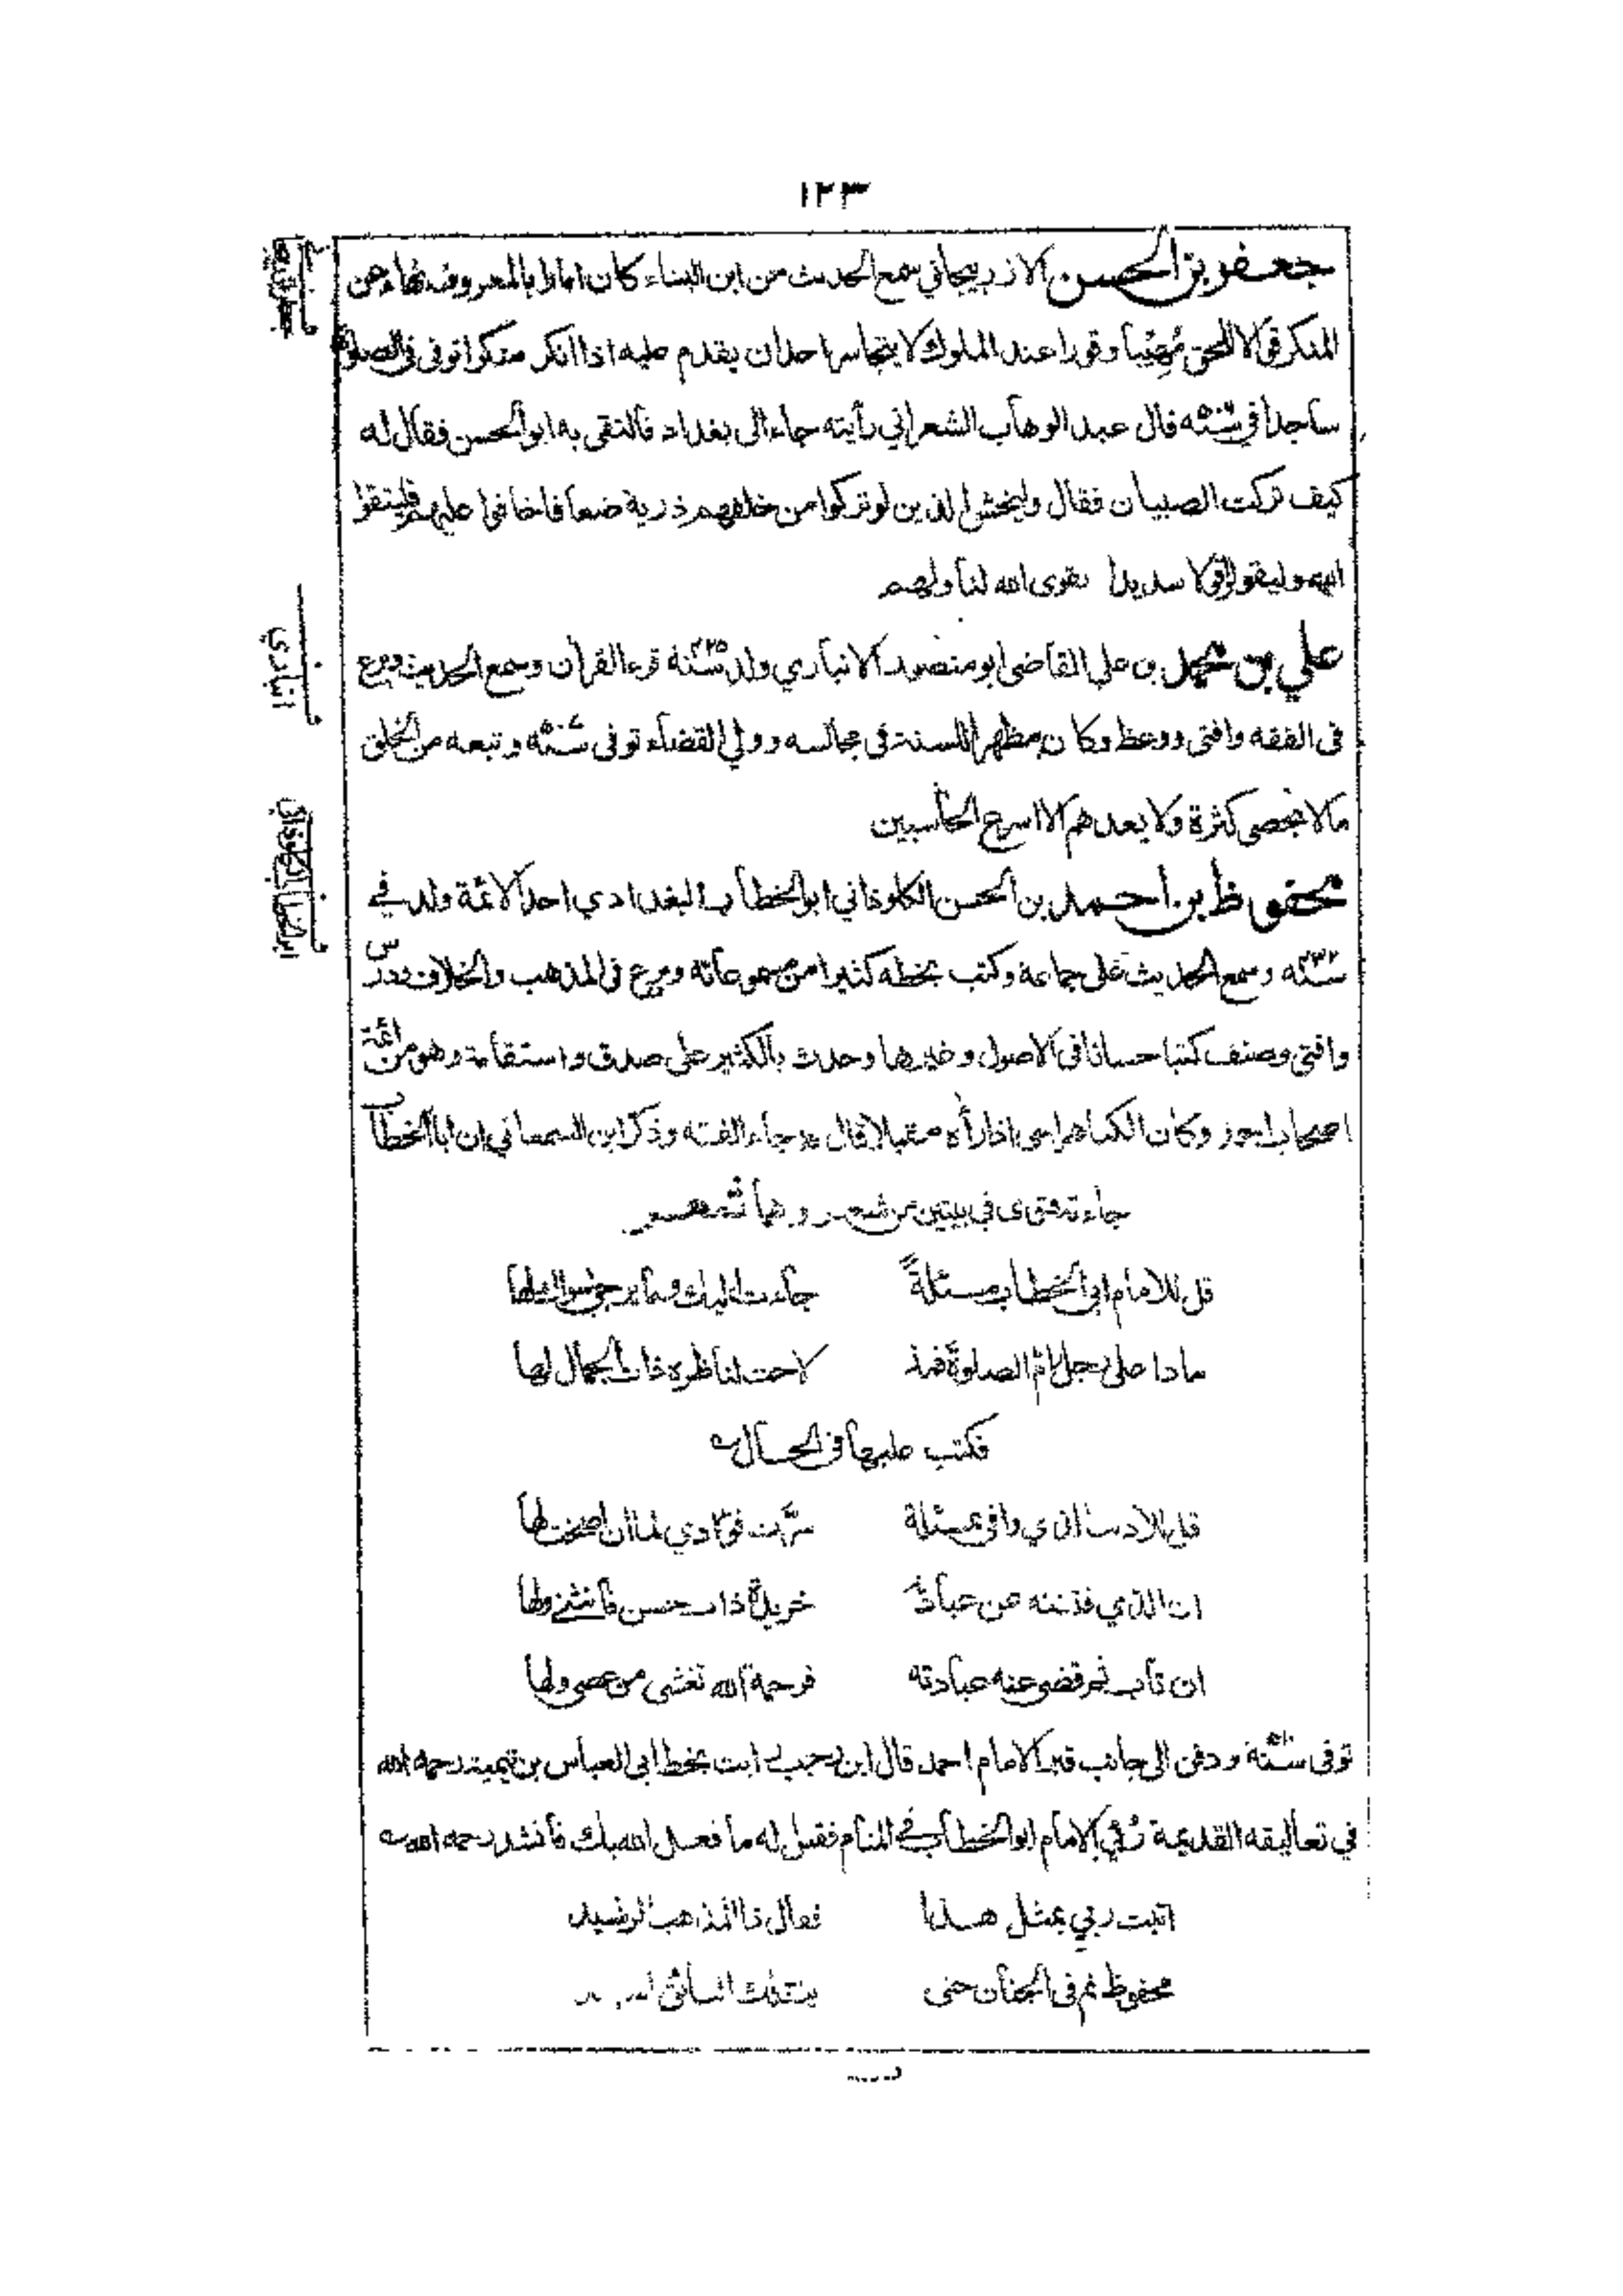 ١٢٣
جعفر بن الحسن الازربيجاني سمع الحديث من ابن البناء كان امارا بالمعروف نهاء عن
المنكر قوالا للحق مهيبا وقورا عند الملوك لا يتجاسر احد ان يقدم عليه اذا انكر منكرا توفي في الصلوة
ساجدا في سنة ٥٠٦ قال عبد الوهاب الشعراني رأيته جاء الى بغداد فالتقى به ابو الحسن فقال له
كيف تركت الصبيان فقال وليخش الذين لو تركوا من خلفهم ذرية ضعافا خافوا عليهم فليتقوا
الله وليقولوا قولا سديدا تقوى الله لنا ولهم
علي بن محمد بن علي القاضي ابو منصور الانباري ولد سنة ٤٢٥ قرء القرآن وسمع الحديث وبرع
في الفقه وافتى ووعظ وكان مظهرا للسنة في مجالسه وولي القضاء توفي سنة ٥٠٧ وتبعه من الخلق
مالا يحصى كثرة ولا يعدهم الا اسرع الحاسبين
محفوظ بن احمد بن الحسن الكلوذاني ابو الخطاب البغدادي احد الائمة ولد في
سنة ٤٣٢ وسمع الحديث على جماعة وكتب بخطه كثيرا من مسموعاته وبرع في المذهب والخلاف ودرس
وافتى وصنف كتبا حسانا في الاصول وغيرها وحدث بالكثير على صدق واستقامة وهو من ائمة
اصحاب احمد وكان الكيا هراسي اذا رأه مقبلا قال جاء الفقه وذكر ابن السمعاني ان ابا الخطاب
جاءته فتوى في بيتين من شعر وهما شعر
قل للامام ابي الخطاب مسئلةً جاءت اليك وما يرجى سواك لها
ماذا على رجل رام الصلوة فمذ لاحت لناظره ذات الجمال لها
فكتب عليها في الحال
قل للاديب الذي وافى بمسئلة سرّت فؤادي لما ان اصخت لها
ان الذي فتنته عن عبادته خريدة ذات حسن فانثنى ولها
ان تاب ثم قضى عنه عبادته فرحمة الله تغشى من عصى ولها
توفي سنة ٥١٠ ودفن الى جانب قبر الامام احمد قال ابن رجب رايت بخط ابي العباس بن تيمية رحمه الله
في تعاليقه القديمة رُئي الامام ابو الخطاب في المنام فقيل له ما فعل الله بك فانشد رحمه الله
اتيت ربي بمثل هذا فقال ذا المذهب الرشيد
محفوظ نم في الجنان حتى ينقلك السائق
انباري